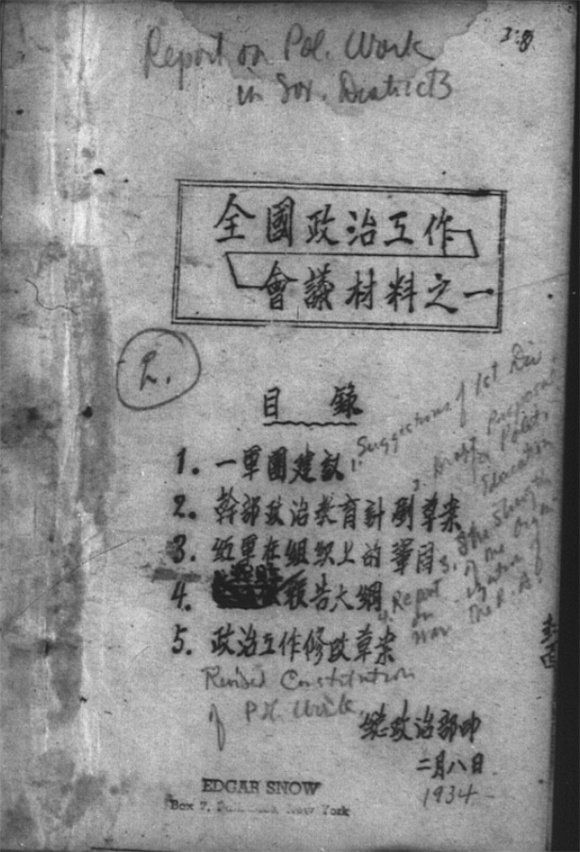 3:8
Report on Pol. Work
in Sov. Districts
全國政治工作
會議材料之一
R.
目錄
1. 一軍團建議
1. Suggestions of 1st Div
2. 幹部政治教育計劃草案
2. Draft Proposal
of Politi.
Education
3. 紅軍在組織上的鞏固
3. The Strength
of the Organ-
ization of
the R.A.
4. 報告大綱
4. Report
on
War
5. 政治工作修改草案
Revised Constitution
of Pol. Work
總政治部印
二月八日
1934
封面
EDGAR SNOW
Box 7, New York